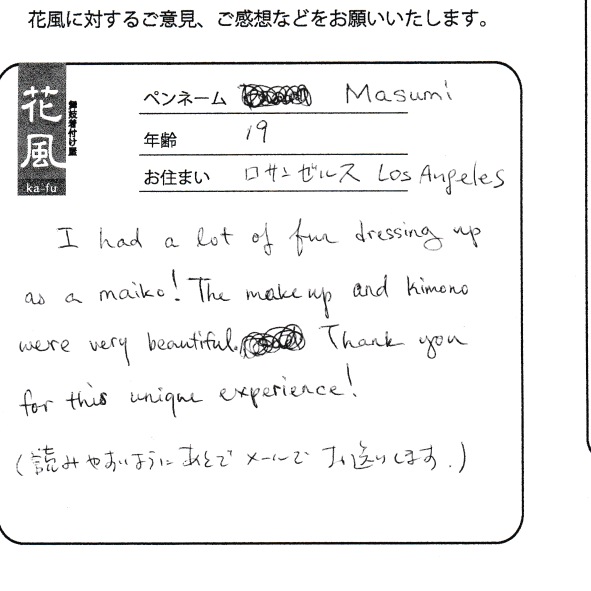 花風に対するご意見、ご感想などをお願いいたします。
花風
舞妓着付け屋
ka-fu
ペンネーム Masumi
年齢 19
お住まい ロサンゼルス Los Angeles
I had a lot of fun dressing up
as a maiko! The makeup and kimono
were very beautiful. Thank you
for this unique experience!
(読みやすいようにあとでメールでお送りします.)